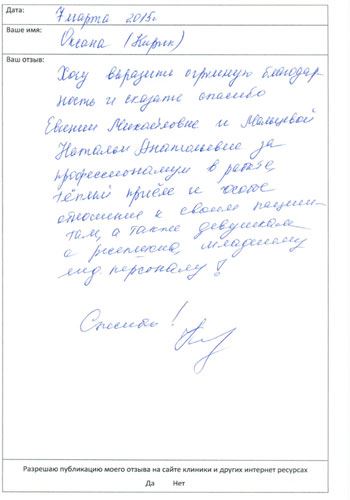 Дата: 7 марта 2015г
Ваше имя: Оксана (Кирик)
Ваш отзыв:
Хочу выразить огромную благодар
ность и сказать спасибо
Евгении Михайловне и Мальцевой
Наталье Анатольевне за
профессионализм в работе,
тёплый приём и особое
отношение к своим пациен-
там, а также девушкам
с ресепшена, младшему
мед персоналу!
Спасибо!
Разрешаю публикацию моего отзыва на сайте клиники и других интернет ресурсах
Да Нет